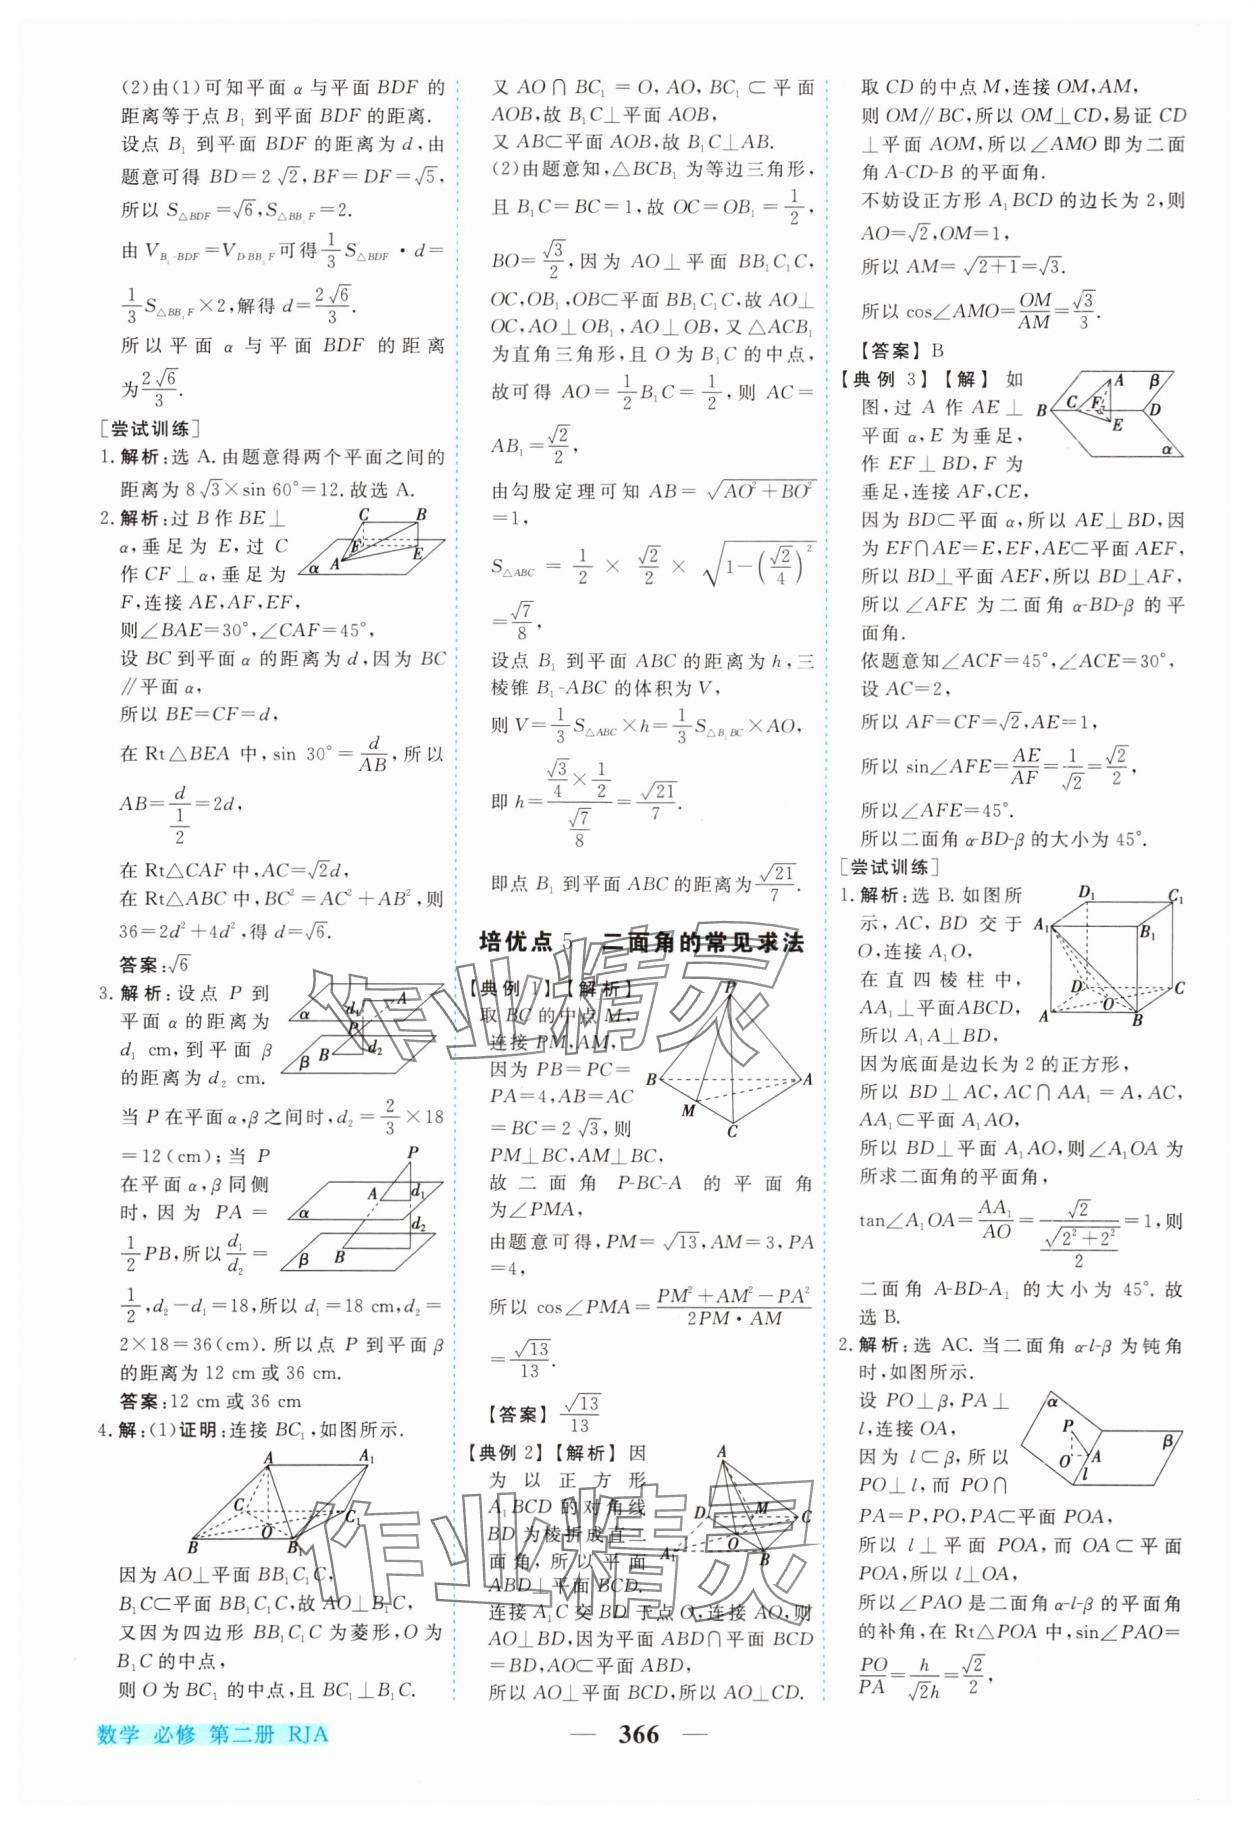 (2)由(1)可知平面 α 与平面 BDF 的
距离等于点 B₁ 到平面 BDF 的距离.
设点 B₁ 到平面 BDF 的距离为 d,由
题意可得 BD=2√2,BF=DF=√5,
所以 S△BDF=√6,S△BB₁F=2.
由 V_{B₁-BDF}=V_{D-BB₁F}可得1/3 S△BDF·d=
1/3 S△BB₁F×2,解得 d=2√6/3.
所以平面 α 与平面 BDF 的距离
为2√6/3.
[尝试训练]
1.解析:选 A.由题意得两个平面之间的
距离为 8√3×sin 60°=12.故选 A.
2.解析:过 B 作 BE⊥
α,垂足为 E,过 C
作 CF⊥α,垂足为
F,连接 AE,AF,EF,
则∠BAE=30°,∠CAF=45°,
设 BC 到平面 α 的距离为 d,因为 BC
∥平面 α,
所以 BE=CF=d,
在 Rt△BEA 中,sin 30°=d/AB,所以
AB=d/(1/2)=2d,
在 Rt△CAF 中,AC=√2d,
在 Rt△ABC 中,BC²=AC²+AB²,则
36=2d²+4d²,得 d=√6.
答案:√6
3.解析:设点 P 到
平面 α 的距离为
d₁ cm,到平面 β
的距离为 d₂ cm.
当 P 在平面 α,β 之间时,d₂=2/3×18
=12(cm);当 P
在平面 α,β 同侧
时,因为 PA=
1/2 PB,所以d₁/d₂=
1/2,d₂-d₁=18,所以 d₁=18 cm,d₂=
2×18=36(cm).所以点 P 到平面 β
的距离为 12 cm 或 36 cm.
答案:12 cm 或 36 cm
4.解:(1)证明:连接 BC₁,如图所示.
A A₁
C C₁
O
B B₁
因为 AO⊥平面 BB₁C₁C,
B₁C⊂平面 BB₁C₁C,故 AO⊥B₁C,
又因为四边形 BB₁C₁C 为菱形,O 为
B₁C 的中点,
则 O 为 BC₁ 的中点,且 BC₁⊥B₁C.
又 AO∩BC₁=O,AO,BC₁⊂平面
AOB,故 B₁C⊥平面 AOB,
又 AB⊂平面 AOB,故 B₁C⊥AB.
(2)由题意知,△BCB₁ 为等边三角形,
且 B₁C=BC=1,故 OC=OB₁=1/2,
BO=√3/2,因为 AO⊥平面 BB₁C₁C,
OC,OB₁,OB⊂平面 BB₁C₁C,故 AO⊥
OC,AO⊥OB₁,AO⊥OB,又△ACB₁
为直角三角形,且 O 为 B₁C 的中点,
故可得 AO=1/2 B₁C=1/2,则 AC=
AB₁=√2/2,
由勾股定理可知 AB=√(AO²+BO²)
=1,
S△ABC=1/2×√2/2×√(1-(√2/4)²)
=√7/8,
设点 B₁ 到平面 ABC 的距离为 h,三
棱锥 B₁-ABC 的体积为 V,
则 V=1/3 S△ABC×h=1/3 S△B₁BC×AO,
即 h=(√3/4×1/2)/(√7/8)=√21/7.
即点 B₁ 到平面 ABC 的距离为√21/7.
培优点 5 二面角的常见求法
【典例 1】【解析】
取 BC 的中点 M,
连接 PM,AM,
因为 PB=PC=
PA=4,AB=AC
=BC=2√3,则
PM⊥BC,AM⊥BC,
故二面角 P-BC-A 的平面角
为∠PMA,
由题意可得,PM=√13,AM=3,PA
=4,
所以 cos∠PMA=(PM²+AM²-PA²)/(2PM·AM)
=√13/13.
【答案】 √13/13
【典例 2】【解析】因
为以正方形
A₁BCD 的对角线
BD 为棱折成直二
面角,所以平面
ABD⊥平面 BCD.
连接 A₁C 交 BD 于点 O,连接 AO,则
AO⊥BD,因为平面 ABD∩平面 BCD
=BD,AO⊂平面 ABD,
所以 AO⊥平面 BCD,所以 AO⊥CD.
取 CD 的中点 M,连接 OM,AM,
则 OM∥BC,所以 OM⊥CD,易证 CD
⊥平面 AOM,所以∠AMO 即为二面
角 A-CD-B 的平面角.
不妨设正方形 A₁BCD 的边长为 2,则
AO=√2,OM=1,
所以 AM=√(2+1)=√3.
所以 cos∠AMO=OM/AM=√3/3.
【答案】B
【典例 3】【解】如
图,过 A 作 AE⊥
平面 α,E 为垂足,
作 EF⊥BD,F 为
垂足,连接 AF,CE,
因为 BD⊂平面 α,所以 AE⊥BD,因
为 EF∩AE=E,EF,AE⊂平面 AEF,
所以 BD⊥平面 AEF,所以 BD⊥AF,
所以∠AFE 为二面角 α-BD-β 的平
面角.
依题意知∠ACF=45°,∠ACE=30°,
设 AC=2,
所以 AF=CF=√2,AE=1,
所以 sin∠AFE=AE/AF=1/√2=√2/2,
所以∠AFE=45°.
所以二面角 α-BD-β 的大小为 45°.
[尝试训练]
1.解析:选 B.如图所
示,AC,BD 交于
O,连接 A₁O,
在直四棱柱中,
AA₁⊥平面ABCD,
所以 A₁A⊥BD,
因为底面是边长为 2 的正方形,
所以 BD⊥AC,AC∩AA₁=A,AC,
AA₁⊂平面 A₁AO,
所以 BD⊥平面 A₁AO,则∠A₁OA 为
所求二面角的平面角,
tan∠A₁OA=AA₁/AO=√2/(√(2²+2²)/2)=1,则
二面角 A-BD-A₁ 的大小为 45°.故
选 B.
2.解析:选 AC.当二面角 α-l-β 为钝角
时,如图所示.
设 PO⊥β,PA⊥
l,连接 OA,
因为 l⊂β,所以
PO⊥l,而 PO∩
PA=P,PO,PA⊂平面 POA,
所以 l⊥平面 POA,而 OA⊂平面
POA,所以 l⊥OA,
所以∠PAO 是二面角 α-l-β 的平面角
的补角,在 Rt△POA 中,sin∠PAO=
PO/PA=h/(√2h)=√2/2,
数学 必修 第二册 RJA
— 366 —
作业精灵
作业精灵